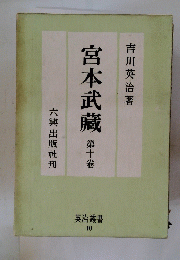 吉川英治著
宮本武藏
第十卷
六興出版社刊
英治叢書
10